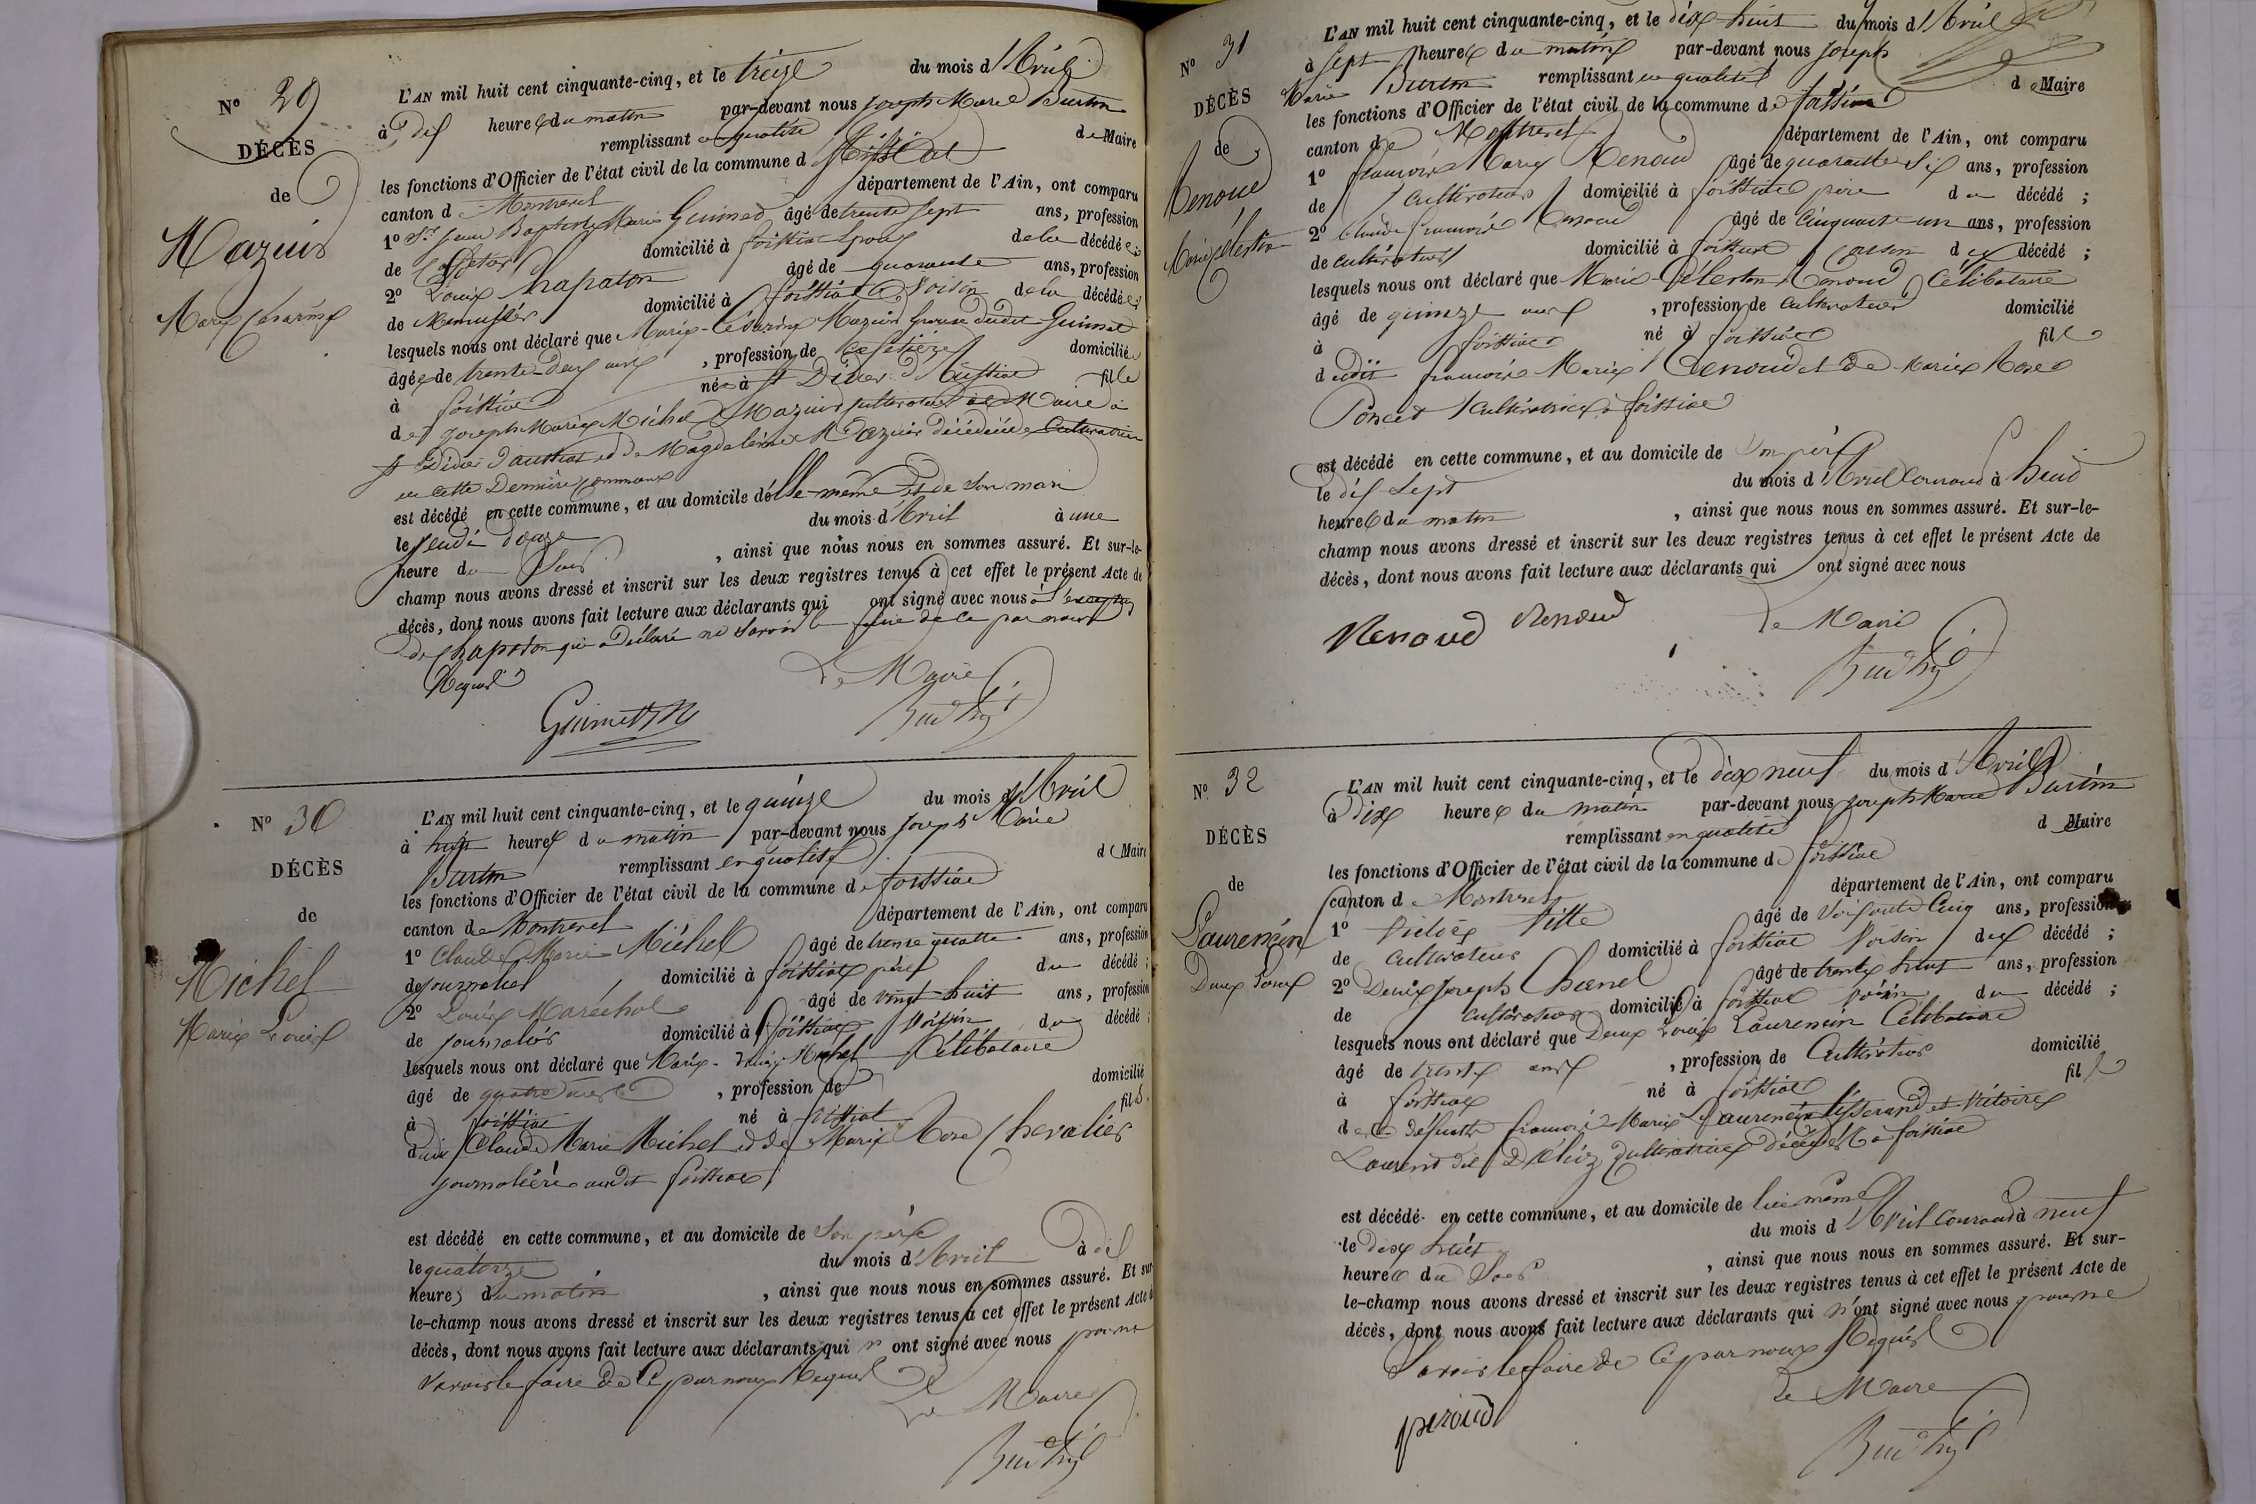 N° 29
DÉCÈS
de
Mazuir
Marie Césarine
L'AN mil huit cent cinquante-cinq, et le treize du mois d'Avril
à dix heures du matin par-devant nous Joseph Marie Burtin
remplissant en qualité de Maire
les fonctions d'Officier de l'état civil de la commune d
canton de Montrevel département de l'Ain, ont comparu
1° Sr Jean Baptiste Marie Guimet âgé de trente sept ans, profession
de domicilié à foissiat Epoux de la décédée ;
2° Louis Chapaton âgé de quarante ans, profession
de Menuisier domicilié à foissiat Voisin de la décédée
lesquels nous ont déclaré que Marie-Césarine Mazuir épouse dudit Guimet
âgée de trente-deux ans , profession de Cafetière domiciliée
à foissiat née à St Didier d'Aussiat fille
de Joseph Marie Michel Mazuir cultivateur Maire à
St Didier d'aussiat et de Magdeleine Mazuir décédée Cultivatrice
en cette Dernière commune
est décédé en cette commune, et au domicile d'elle-même et de son mari
le jeudi douze du mois d'Avril à une
heure du Soir , ainsi que nous nous en sommes assuré. Et sur-le-
champ nous avons dressé et inscrit sur les deux registres tenus à cet effet le présent Acte de
décès, dont nous avons fait lecture aux déclarants qui ont signé avec nous à l'exception
de Chapaton qui a Déclaré ne Savoir le faire de ce par nous
Requis
Le Maire
Guimet
Burtin
N° 30
DÉCÈS
de
Michel
Marie Louis
L'AN mil huit cent cinquante-cinq, et le quinze du mois d'Avril
à huit heures du matin par-devant nous Joseph Marie
Burtin remplissant en qualité de Maire
les fonctions d'Officier de l'état civil de la commune de foissiat
canton de Montrevel département de l'Ain, ont comparu
1° Claude Marie Michel âgé de trente quatre ans, profession
de journalier domicilié à foissiat père du décédé ;
2° Louis Maréchal âgé de vingt huit ans, profession
de journalier domicilié à foissiat Voisin du décédé ;
lesquels nous ont déclaré que Marie-Louis Michel Célibataire
âgé de quatre , profession de domicilié
à foissiat né à foissiat fils
dudit Claude Marie Michel et de Marie Rose Chevalier
journalière audit foissiat
est décédé en cette commune, et au domicile de Son père
le quatorze du mois d'Avril à dix
heures du matin , ainsi que nous nous en sommes assuré. Et sur
le-champ nous avons dressé et inscrit sur les deux registres tenus à cet effet le présent Acte de
décès, dont nous avons fait lecture aux déclarants qui n'ont signé avec nous pour ne
Savoir le faire de Ce par nous Requis
Le Maire
Burtin
N° 31
DÉCÈS
de
Renoud
Marie Célestin
L'AN mil huit cent cinquante-cinq, et le dix-huit du mois d'Avril
à sept heures du matin par-devant nous Joseph
Marie Burtin remplissant en qualité de Maire
les fonctions d'Officier de l'état civil de la commune de foissiat
canton de Montrevel département de l'Ain, ont comparu
1° François Marie Renoud âgé de quarante Six ans, profession
de Cultivateur domicilié à foissiat père du décédé ;
2° Claude François Renoud âgé de Cinquante un ans, profession
de Cultivateur domicilié à foissiat Cousin du décédé ;
lesquels nous ont déclaré que Marie-Célestin Renoud Célibataire
âgé de quinze ans , profession de Cultivateur domicilié
à foissiat né à foissiat fils
dudit françois Marie Renoud et De Marie Rose
Poncet Cultivatrice à foissiat
est décédé en cette commune, et au domicile de Son père
le dix Sept du mois d'Avril Courant à huit
heures du matin , ainsi que nous nous en sommes assuré. Et sur-le-
champ nous avons dressé et inscrit sur les deux registres tenus à cet effet le présent Acte de
décès, dont nous avons fait lecture aux déclarants qui ont signé avec nous
Renoud Renoud Le Maire
Burtin
N° 32
DÉCÈS
de
Laurencin
Denis Louis
L'AN mil huit cent cinquante-cinq, et le dix neuf du mois d'Avril
à Dix heures du matin par-devant nous Joseph Marie Burtin
remplissant en qualité de Maire
les fonctions d'Officier de l'état civil de la commune de foissiat
canton de Montrevel département de l'Ain, ont comparu
1° Pitte âgé de Soixante Cinq ans, profession
de Cultivateur domicilié à foissiat Voisin du décédé ;
2° Denis Joseph Chanel âgé de trente huit ans, profession
de Cultivateur domicilié à foissiat Voisin du décédé ;
lesquels nous ont déclaré que Denis Louis Laurencin Célibataire
âgé de trente ans , profession de Cultivateur domicilié
à foissiat né à foissiat fils
de défunts françois Marie Laurencin tisserand et Vitoire
Laurent Cultivatrice décédés à foissiat
est décédé en cette commune, et au domicile de lui même
le Dix huit du mois d'Avril Courant à neuf
heures du Soir , ainsi que nous nous en sommes assuré. Et sur-
le-champ nous avons dressé et inscrit sur les deux registres tenus à cet effet le présent Acte de
décès, dont nous avons fait lecture aux déclarants qui n'ont signé avec nous pour ne
Savoir le faire de Ce par nous Requis
Le Maire
peroud
Burtin